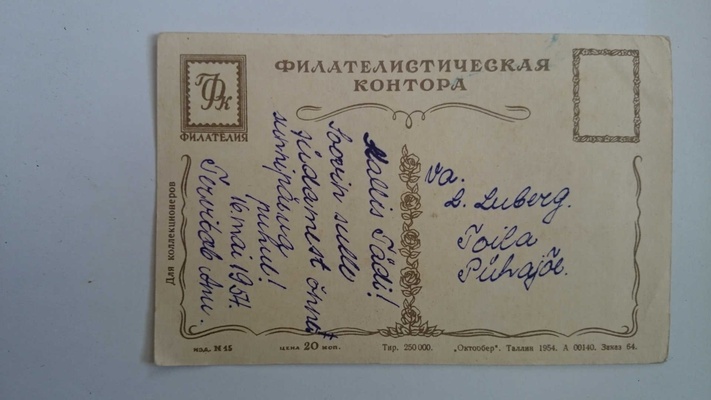 ФИЛАТЕЛИСТИЧЕСКАЯ
КОНТОРА
Фк
ФИЛАТЕЛИЯ
Для коллекционеров
Kallis Tädi!
Soovin sulle
südamest õnne
sünnipäeva
puhul!
16. mai 1957.
Tervitab Anu.
va.
L. Luberg.
Toila
Pühajõe.
изд. № 15
ЦЕНА 20 коп.
Тир. 250 000.
„Октообер". Таллин 1954. А 00140. Заказ 64.